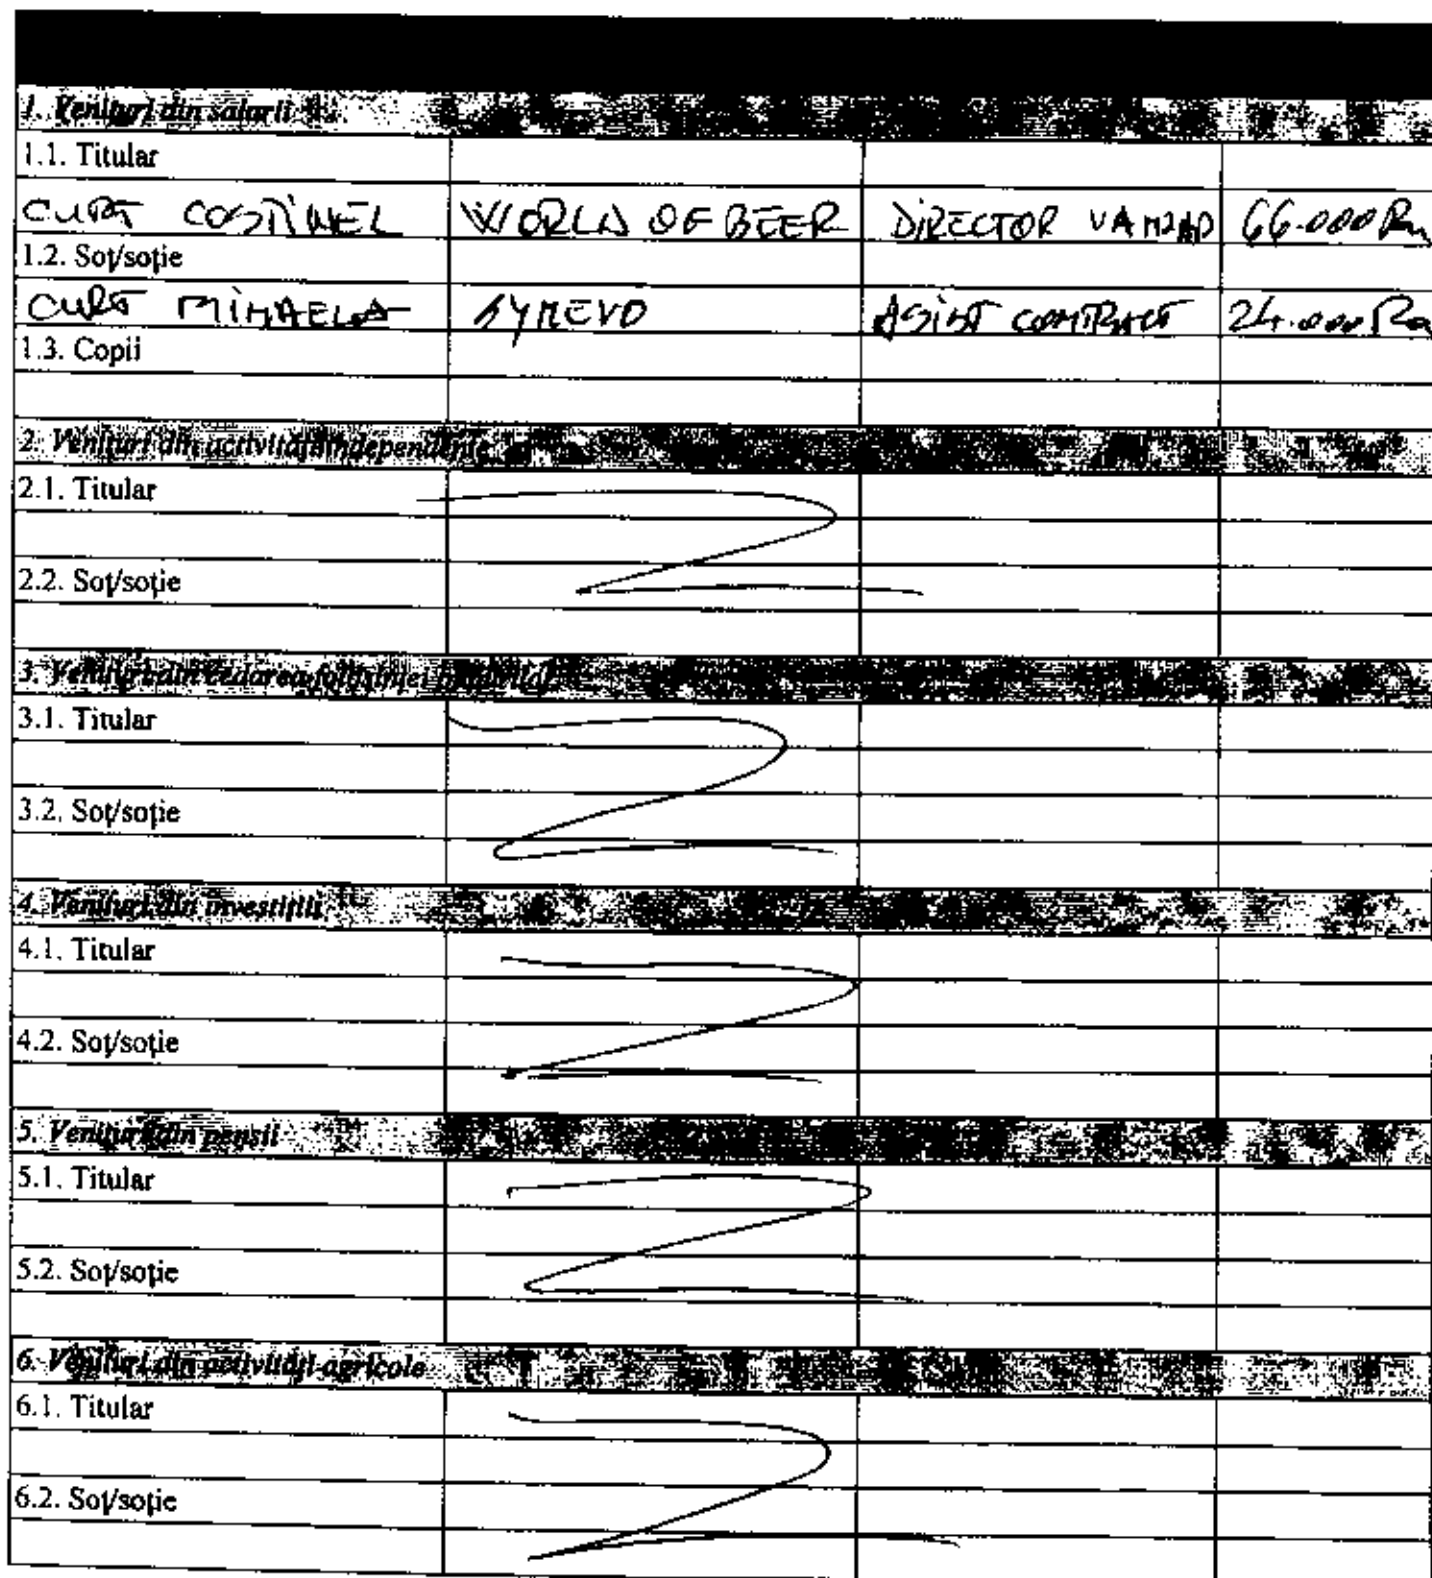 1. Venituri din salarii
1.1. Titular
CURT COSTINEL WORLD OF BEER DIRECTOR 66.000 Ron
1.2. Soț/soție
CURT MIHAELA SYNEVO ASIST CONTRACT 24.000 Ron
1.3. Copii
2. Venituri din activități independente
2.1. Titular
2.2. Soț/soție
3. Venituri din cedarea folosinței bunurilor
3.1. Titular
3.2. Soț/soție
4. Venituri din investiții
4.1. Titular
4.2. Soț/soție
5. Venituri din pensii
5.1. Titular
5.2. Soț/soție
6. Venituri din activități agricole
6.1. Titular
6.2. Soț/soție